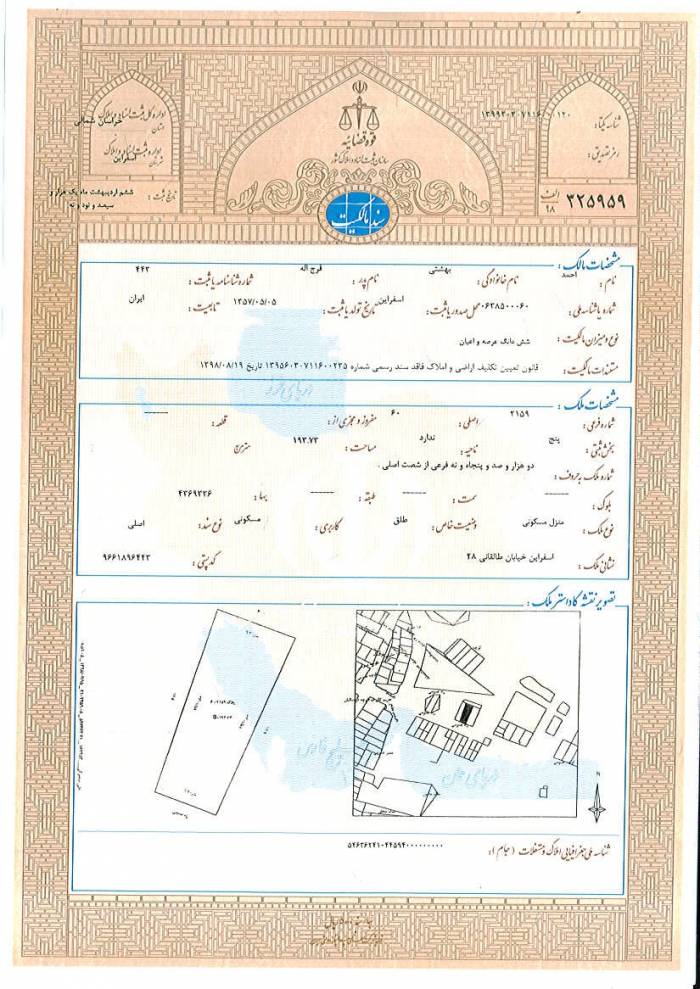 قوه قضائیه
سازمان ثبت اسناد و املاک کشور
سند مالکیت
اداره کل ثبت اسناد و املاک
استان خراسان شمالی
اداره ثبت اسناد و املاک
شهرستان اسفراین
تاریخ ثبت : ششم اردیبهشت ماه یک هزار و
سیصد و نود و نه
شناسه یکتا :
رمز تصدیق :
الف ۹۸ ۳۲۵۹۵۹
مشخصات مالک :
نام : احمد نام خانوادگی : بهشتی نام پدر : فرج اله شماره شناسنامه یا ثبت : ۴۴۳
شماره یا شناسه ملی : ۰۶۳۸۵۰۰۰۶۰ محل صدور یا ثبت : اسفراین تاریخ تولد یا ثبت : ۱۳۵۷/۰۵/۰۵ تابعیت : ایران
نوع و میزان مالکیت : شش دانگ عرصه و اعیان
مستندات مالکیت : قانون تعیین تکلیف اراضی و املاک فاقد سند رسمی شماره ۱۳۹۵۶۰۳۰۷۱۱۶۰۰۲۳۵ تاریخ ۱۳۹۸/۰۸/۱۹
مشخصات ملک :
شماره فرعی : ۲۱۵۹ اصلی : ۶۰ مفروز و مجزی از : قطعه : ------
بخش ثبتی : پنج ناحیه : ندارد مساحت : ۱۹۳.۷۳ متر مربع
شماره ملک به حروف : دو هزار و صد و پنجاه و نه فرعی از شصت اصلی .
بلوک : ------ سمت : ------ طبقه : ------ بها : ۴۳۶۹۳۳۶
نوع ملک : منزل مسکونی وضعیت خاص : طلق کاربری : مسکونی نوع سند : اصلی
نشانی ملک : اسفراین خیابان طالقانی ۲۸ کد پستی : ۹۶۶۱۸۹۶۴۴۳
تصویر نقشه کاداستر ملک :
دریای خزر
خلیج فارس
دریای عمان
N
شناسه ملی جغرافیایی املاک و مستغلات (جیام) : ۵۲۶۳۶۲۴۱-۴۴۵۹۴۰۰۰۰۰۰۰۰۰